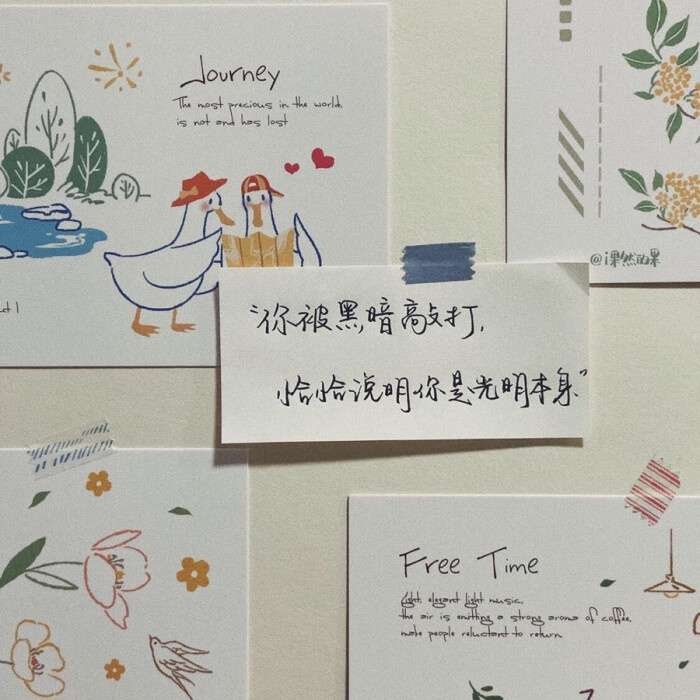 Journey
The most precious in the world,
is not and has lost
@i果然的果
“你被黑暗敲打,
恰恰说明你是光明本身”
Free Time
Light, elegant light music,
the air is emitting a strong aroma of coffee,
make people reluctant to return